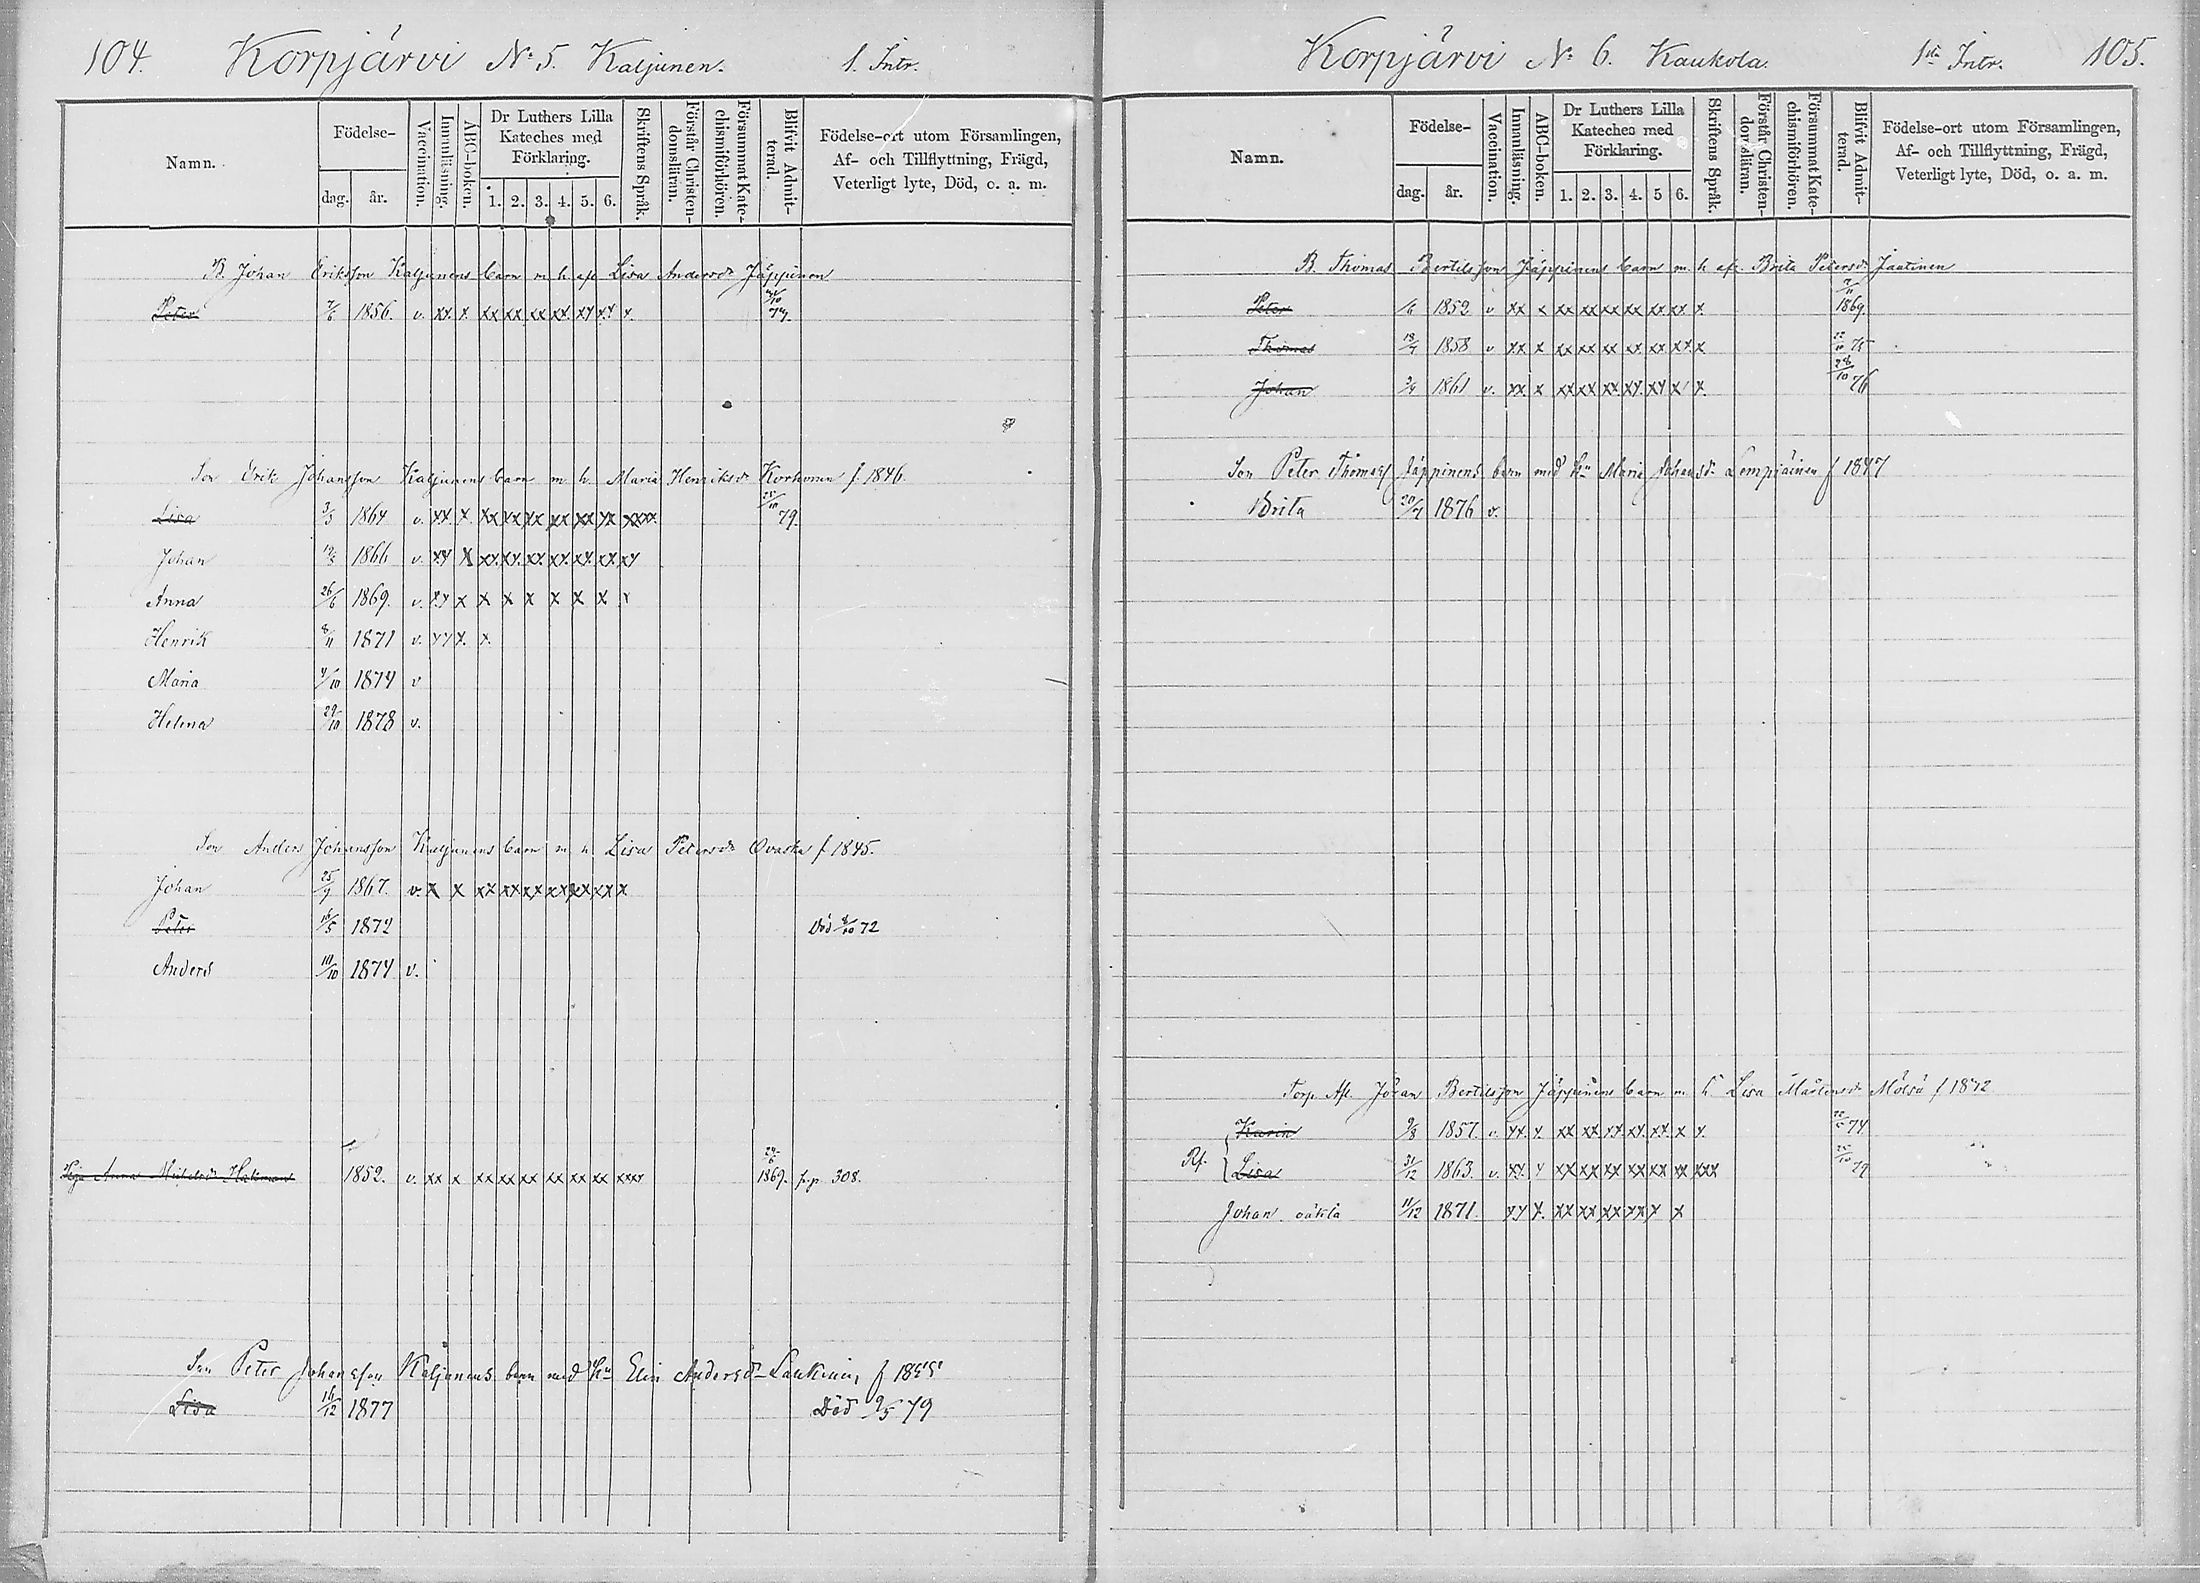 104. Korpjärvi No 5. Kaljunen. 1. Intr.
Namn. Födelse- dag. år. Vaccination. Innanläsning. ABC-boken. Dr Luthers Lilla Kateches med Förklaring. 1. 2. 3. 4. 5. 6. Skriftens Språk. Förstår Christendomsläran. Försummat Katechismiförhören. Blifvit Admitterad. Födelse-ort utom Församlingen, Af- och Tillflyttning, Frägd, Veterligt lyte, Död, o. a. m.
B. Johan Eriksson Kaljunens barn m. h. afl. Lisa Andersdr Jäppinen
Peter 7/6 1856. v. xx. x. xx xx xx xx. xx xx x. 74.
Son Erik Johansson Kaljunens barn m h. Maria Henriksdr Korhonen f. 1846.
Lisa 3/3 1864 v. xx x xx xx xx xx xx xx xxxx. 79.
Johan 1866 v. xx x xx. xx. xx. xx. xx. xx. xx
Anna 26/6 1869. v. xx x x x x x x x x
Henrik 8/11 1871 v. xx x. x.
Maria 4/10 1874 v
Helena 29/10 1878 v.
Son Anders Johansson Kaljunens barn m. h. Lisa Petersdr Ovaska f 1845.
Johan 25/9 1867. v. x x xx xx xx xx xx xx x
Peter 16/5 1872 Död 8/10 72
Anders 10/10 1874 v.
Anna 1852. v. xx x xx xx xx xx xx xx xxxx 1869. p. 308.
Son Peter Johansson Kaljunens barn med hu Elin Andersdr Laukinen f 1855
Lisa 16/12 1877 Död 9/5 79
Korpjärvi No 6. Kaukola. 1sta Intr. 105.
Namn. Födelse- dag. år. Vaccination. Innanläsning. ABC-boken. Dr Luthers Lilla Kateches med Förklaring. 1. 2. 3. 4. 5 6. Skriftens Språk. Förstår Christendomsläran. Försummat Katechismiförhören. Blifvit Admitterad. Födelse-ort utom Församlingen, Af- och Tillflyttning, Frägd, Veterligt lyte, Död, o. a. m.
B. Thomas Bertilsson Jäppinens barn m. h. afl. Brita Petersdr Jaatinen
Peter 1852 v xx x xx xx xx xx xx xx x 1869.
Thomas 1858 v xx x xx xx xx xx xx xx x 75
Johan 1861 v. xx x xx xx xx xx. xx x x. 28/10 76
Son Peter Thomass Jäppinens barn med hu Maria Johansdr Lempiäinen f 1847
Brita 20/7 1876 v.
Torp. Afl. Johan Bertilsson Jäppinens barn m. h. Lisa Mårtensdr Mölsä f 1842
Karin 9/8 1857. v. xx. x. xx xx xx xx. xx. x x. 74
Lisa 31/12 1863. v. xx. x xx xx xx xx xx xx xxx 79
Johan oäkta 11/12 1871. xx x. xx xx xx xx x x